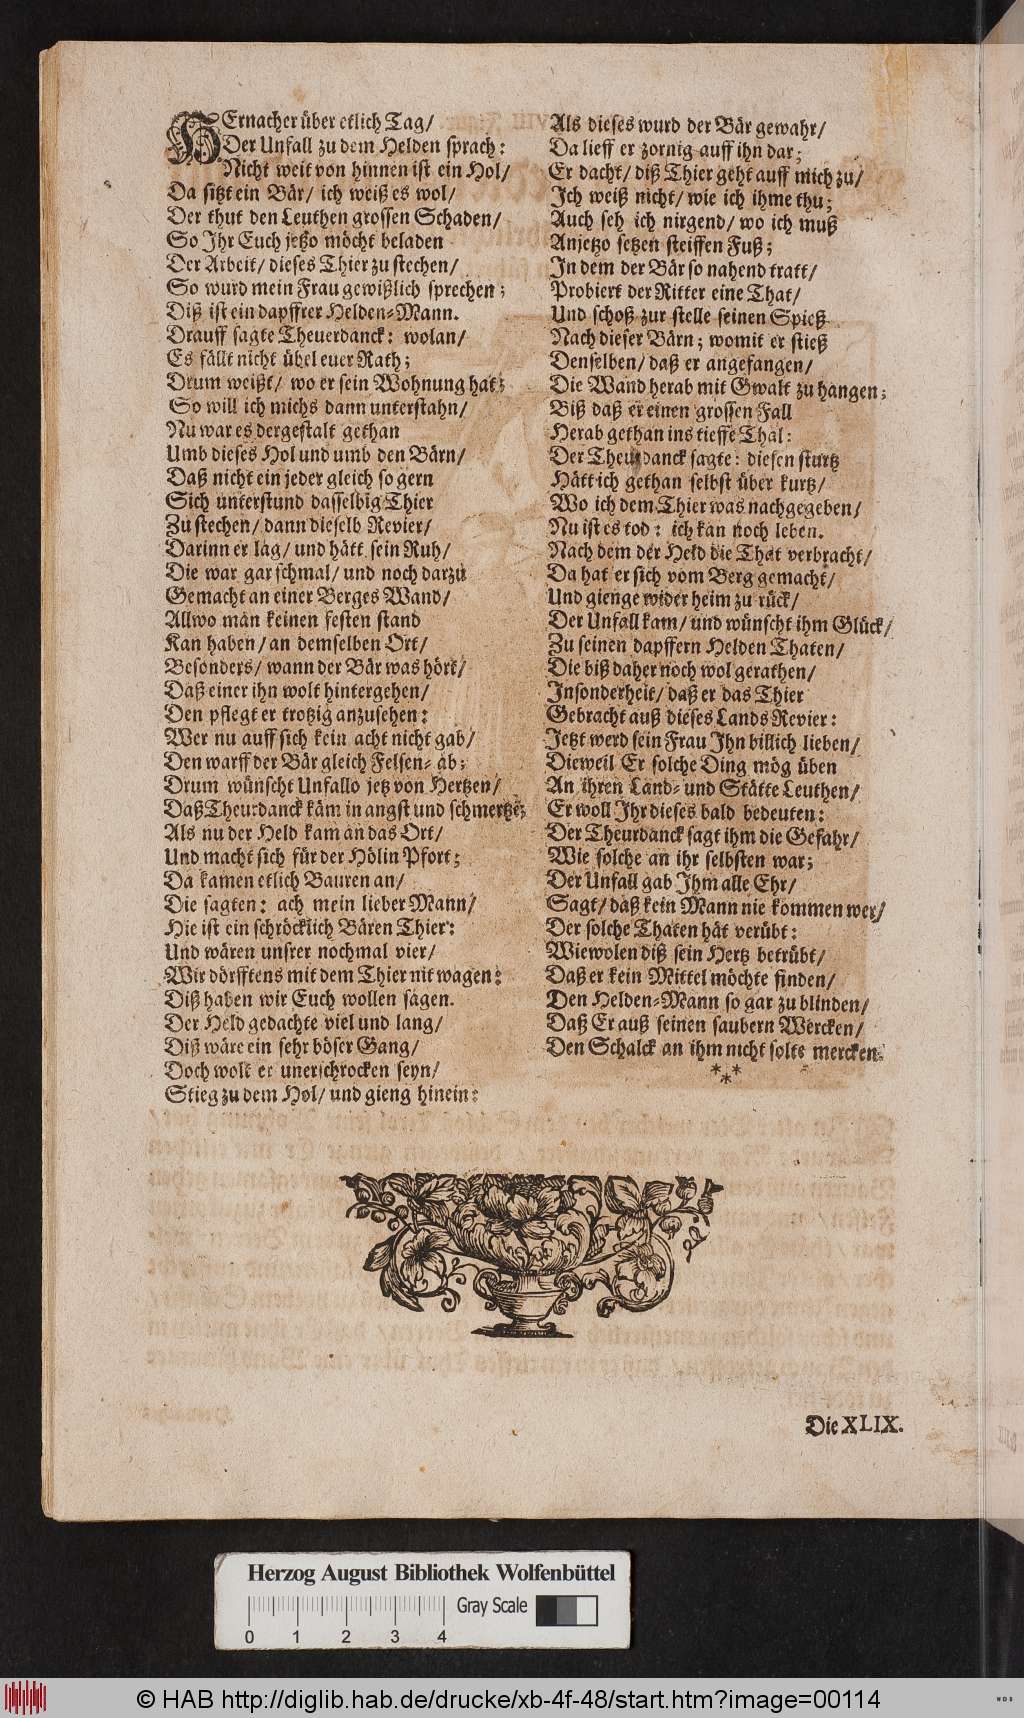 HErnacher über etlich Tag/
Der Unfall zu dem Helden sprach:
Nicht weit von hinnen ist ein Hol/
Da sitzt ein Bär/ ich weiß es wol/
Der thut den Leuthen grossen Schaden/
So Ihr Euch jetzo möcht beladen
Der Arbeit/ dieses Thier zu stechen/
So wurd mein Frau gewißlich sprechen;
Diß ist ein dapffrer Helden-Mann.
Drauff sagte Theuerdanck: wolan/
Es fällt nicht übel euer Rath;
Drum weißt/ wo er sein Wohnung hat;
So will ich michs dann unterstahn/
Nu war es dergestalt gethan
Umb dieses Hol und umb den Bärn/
Daß nicht ein jeder gleich so gern
Sich unterstund dasselbig Thier
Zu stechen/ dann dieselb Revier/
Darinn er lag/ und hätt sein Ruh/
Die war gar schmal/ und noch darzu
Gemacht an einer Berges Wand/
Allwo man keinen festen stand
Kan haben/ an demselben Ort/
Besonders/ wann der Bär was hört/
Daß einer ihn wolt hintergehen/
Den pflegt er trotzig anzusehen:
Wer nu auff sich kein acht nicht gab/
Den warff der Bär gleich Felsen-ab;
Drum wünscht Unfallo jetz von Hertzen/
Daß Theurdanck käm in angst und schmertzē;
Als nu der Held kam an das Ort/
Und macht sich für der Hölin Pfort;
Da kamen etlich Bauren an/
Die sagten: ach mein lieber Mann/
Hie ist ein schröcklich Bären Thier:
Und wären unsrer nochmal vier/
Wir dörfftens mit dem Thier nit wagen:
Diß haben wir Euch wollen sagen.
Der Held gedachte viel und lang/
Diß wäre ein sehr böser Gang/
Doch wolt er unerschrocken seyn/
Stieg zu dem Hol/ und gieng hinein:
Als dieses wurd der Bär gewahr/
Da lieff er zornig auff ihn dar;
Er dacht/ diß Thier geht auff mich zu/
Ich weiß nicht/ wie ich ihme thu;
Auch seh ich nirgend/ wo ich muß
Anjetzo setzen steiffen Fuß;
In dem der Bär so nahend tratt/
Probiert der Ritter eine That/
Und schoß zur stelle seinen Spieß
Nach dieser Bärn; womit er stieß
Denselben/ daß er angefangen/
Die Wand herab mit Gwalt zu hangen;
Biß daß er einen grossen Fall
Herab gethan ins tieffe Thal:
Der Theurdanck sagte: diesen sturtz
Hätt ich gethan selbst über kurtz/
Wo ich dem Thier was nachgegeben/
Nu ist es tod: ich kan noch leben.
Nach dem der Held die That verbracht/
Da hat er sich vom Berg gemacht/
Und gienge wider heim zu rück/
Der Unfall kam/ und wünscht ihm Glück/
Zu seinen dapffern Helden Thaten/
Die biß daher noch wol gerathen/
Insonderheit/ daß er das Thier
Gebracht auß dieses Lands Revier:
Jetzt werd sein Frau Ihn billich lieben/
Dieweil Er solche Ding mög üben
An ihren Land- und Stätte Leuthen/
Er woll Ihr dieses bald bedeuten:
Der Theurdanck sagt ihm die Gefahr/
Wie solche an ihr selbsten war;
Der Unfall gab Ihm alle Ehr/
Sagt/ daß kein Mann nie kommen wer/
Der solche Thaten hät verübt:
Wiewolen diß sein Hertz betrübt/
Daß er kein Mittel möchte finden/
Den Helden-Mann so gar zu blinden/
Daß Er auß seinen saubern Wercken/
Den Schalck an ihm nicht solte mercken.
***
Die XLIX.
Herzog August Bibliothek Wolfenbüttel
Gray Scale
0 1 2 3 4
© HAB http://diglib.hab.de/drucke/xb-4f-48/start.htm?image=00114